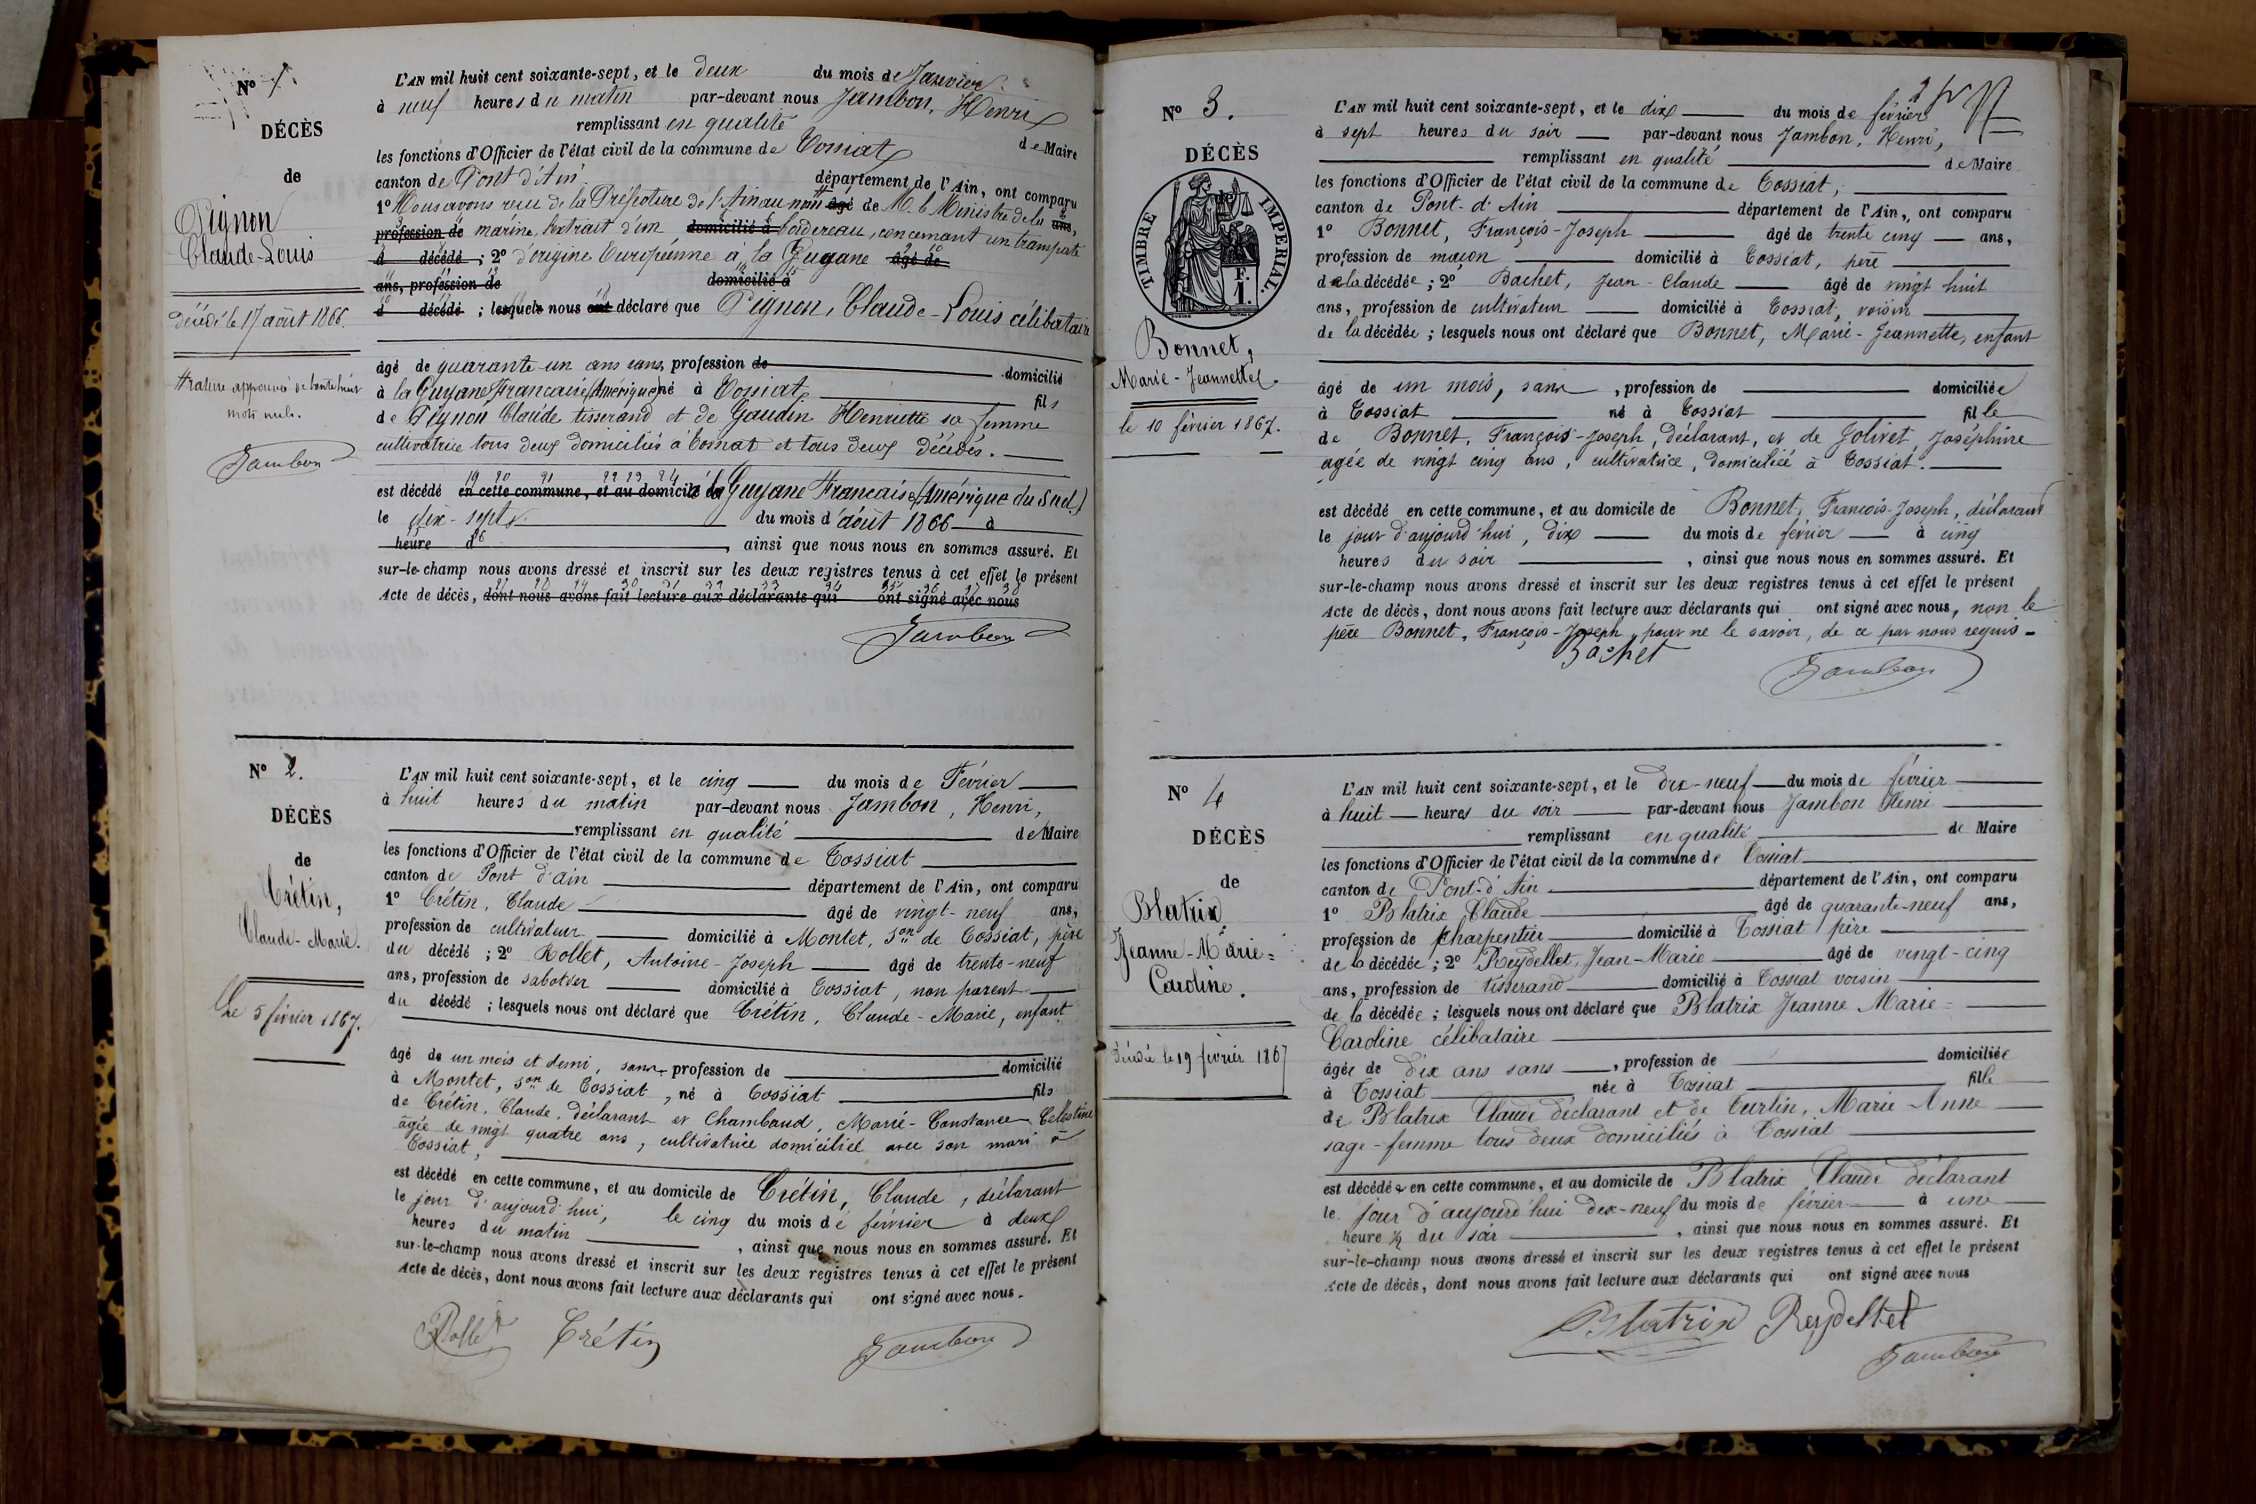 Nº 1
DÉCÈS
de
Pignon
Claude-Louis
décédé le 17 août 1866.
Rature approuvée de trente huit
mots nuls.
Jambon
L'AN mil huit cent soixante-sept, et le deux du mois de Janvier
à neuf heures du matin par-devant nous Jambon, Henri
remplissant en qualité de Maire
les fonctions d'Officier de l'état civil de la commune de Tossiat
canton de Pont d'Ain département de l'Ain, ont comparu
1º Nous avons reçu de la Préfecture de l'Ain au nom âgé de M. le Ministre de la ans,
profession de marine, l'extrait d'un domicilié à bordereau, concernant un transporté
d décédé ; 2º d'origine Européenne à la Guyane âgé de
ans, profession de domicilié à
d décédé ; lesquels nous ont déclaré que Pignon, Claude-Louis célibataire
âgé de quarante-un ans sans profession de domicilié
à la Guyane Française (Amérique) né à Tossiat fils
de Pignon Claude tisserand et de Gaudin Henriette sa femme
cultivatrice tous deux domiciliés à Tossiat et tous deux décédés.
est décédé en cette commune, et au domicile de à la Guyane Française (Amérique du Sud)
le dix-sept du mois d'août 1866 à
heure d , ainsi que nous nous en sommes assuré. Et
sur-le-champ nous avons dressé et inscrit sur les deux registres tenus à cet effet le présent
Acte de décès, dont nous avons fait lecture aux déclarants qui ont signé avec nous
Jambon
Nº 2.
DÉCÈS
de
Crétin,
Claude-Marie.
Le 5 février 1867.
L'AN mil huit cent soixante-sept, et le cinq du mois de Février
à huit heures du matin par-devant nous Jambon, Henri,
remplissant en qualité de Maire
les fonctions d'Officier de l'état civil de la commune de Tossiat
canton de Pont d'Ain département de l'Ain, ont comparu
1º Crétin, Claude âgé de vingt-neuf ans,
profession de cultivateur domicilié à Montet, son de Tossiat, père
du décédé ; 2º Rollet, Antoine-Joseph âgé de trente-neuf
ans, profession de sabotier domicilié à Tossiat, non parent
du décédé ; lesquels nous ont déclaré que Crétin, Claude-Marie, enfant
âgé de un mois et demi, sans profession de domicilié
à Montet, son de Tossiat, né à Tossiat fils
de Crétin, Claude, déclarant et Chambaud, Marie-Constance Célestine
âgée de vingt quatre ans, cultivatrice domiciliée avec son mari à
Tossiat,
est décédé en cette commune, et au domicile de Crétin, Claude, déclarant
le jour d'aujourd'hui, le cinq du mois de février à deux
heures du matin , ainsi que nous nous en sommes assuré. Et
sur-le-champ nous avons dressé et inscrit sur les deux registres tenus à cet effet le présent
Acte de décès, dont nous avons fait lecture aux déclarants qui ont signé avec nous.
Rollet Crétin Jambon
2
Nº 3.
DÉCÈS
TIMBRE IMPERIAL.
F.
1.
Bonnet,
Marie-Jeannette
le 10 février 1867.
L'AN mil huit cent soixante-sept, et le dix du mois de février
à sept heures du soir par-devant nous Jambon, Henri,
remplissant en qualité de Maire
les fonctions d'Officier de l'état civil de la commune de Tossiat,
canton de Pont-d'Ain département de l'Ain, ont comparu
1º Bonnet, François-Joseph âgé de trente cinq ans,
profession de maçon domicilié à Tossiat, père
de la décédée ; 2º Bachet, Jean-Claude âgé de vingt huit
ans, profession de cultivateur domicilié à Tossiat, voisin
de la décédée ; lesquels nous ont déclaré que Bonnet, Marie-Jeannette, enfant
âgé de un mois, sans , profession de domiciliée
à Tossiat né à Tossiat fille
de Bonnet, François-Joseph, déclarant, et de Jolivet, Joséphine
agée de vingt cinq ans, cultivatrice, domiciliée à Tossiat.
est décédé en cette commune, et au domicile de Bonnet, François-Joseph, déclarant
le jour d'aujourd'hui, dix du mois de février à cinq
heures du soir , ainsi que nous nous en sommes assuré. Et
sur-le-champ nous avons dressé et inscrit sur les deux registres tenus à cet effet le présent
Acte de décès, dont nous avons fait lecture aux déclarants qui ont signé avec nous, non le
père Bonnet, François-Joseph, pour ne le savoir, de ce par nous requis.
Bachet
Jambon
Nº 4
DÉCÈS
de
Blatrix
Jeanne-Marie-
Caroline.
Décédée le 19 février 1867
L'AN mil huit cent soixante-sept, et le dix-neuf du mois de février
à huit heures du soir par-devant nous Jambon Henri
remplissant en qualité de Maire
les fonctions d'Officier de l'état civil de la commune de Tossiat
canton de Pont-d'Ain département de l'Ain, ont comparu
1º Blatrix Claude âgé de quarante-neuf ans,
profession de charpentier domicilié à Tossiat père
de la décédée ; 2º Reydellet, Jean-Marie âgé de vingt-cinq
ans, profession de tisserand domicilié à Tossiat voisin
de la décédée ; lesquels nous ont déclaré que Blatrix Jeanne Marie-
Caroline célibataire
âgée de dix ans sans , profession de domiciliée
à Tossiat née à Tossiat fille
de Blatrix Claude déclarant et de Turlin, Marie-Anne
sage-femme tous deux domiciliés à Tossiat
est décédée en cette commune, et au domicile de Blatrix Claude déclarant
le jour d'aujourd'hui dix-neuf du mois de février à une
heure ½ du soir , ainsi que nous nous en sommes assuré. Et
sur-le-champ nous avons dressé et inscrit sur les deux registres tenus à cet effet le présent
Acte de décès, dont nous avons fait lecture aux déclarants qui ont signé avec nous
Blatrix Reydellet
Jambon